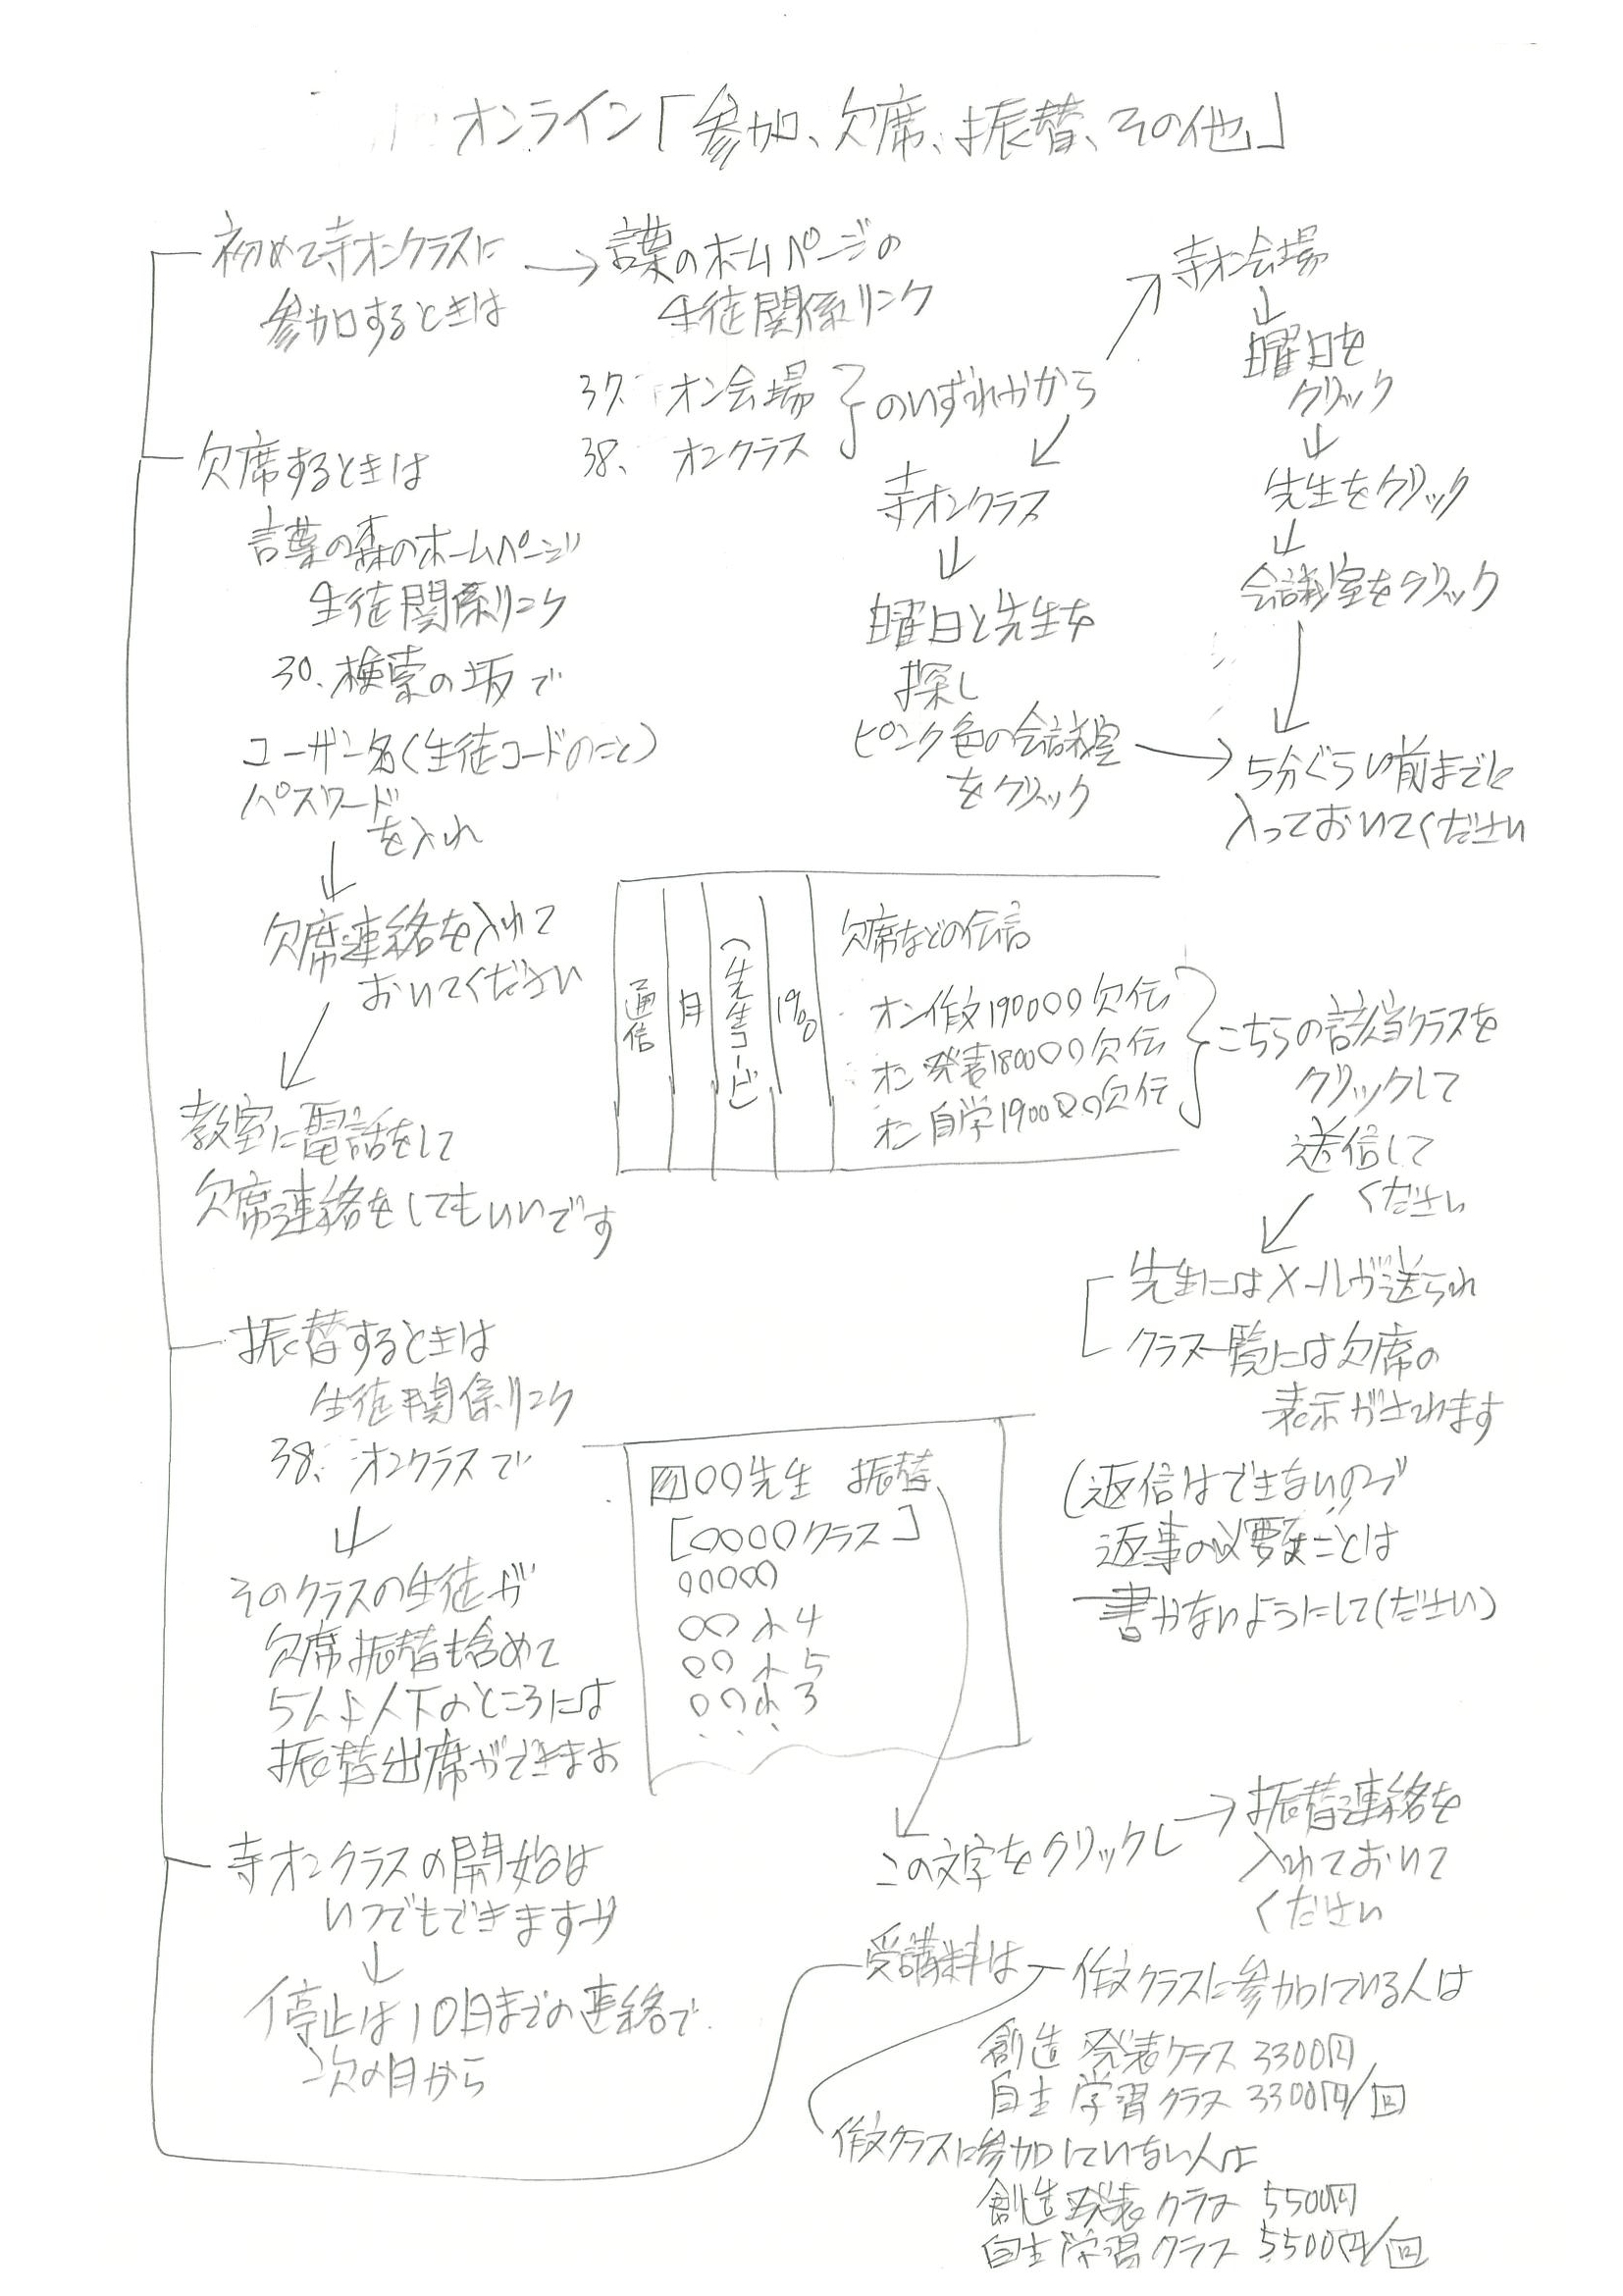 オンライン「参加、欠席、振替、その他」
初めて寺オンクラスに
参加するときは
→
言葉のホームページの
生徒関係リンク
37. オン会場
38、オンクラス
のいずれかから
寺オン会場
↓
曜日を
クリック
↓
先生をクリック
↓
会議室をクリック
寺オンクラス
↓
曜日と先生を
探し
ピンク色の会議室
をクリック
→
5分ぐらい前までに
入っておいてください
欠席するときは
言葉の森のホームページ
生徒関係リンク
30、検索の坂で
ユーザー名(生徒コードのこと)
パスワード
を入れ
↓
欠席連絡を入れて
おいてください
教室に電話をして
欠席連絡をしてもいいです
通信
月
(先生コード)
1900
欠席などの伝言
オン作文1900〇〇欠伝
オン発表1800〇〇欠伝
オン自学1900〇〇欠伝
こちらの該当クラスを
クリックして
送信して
ください
先生にはメールが送られ
クラス一覧には欠席の
表示がされます
(返信はできないので
返事の必要なことは
書かないようにしてください)
振替するときは
生徒関係リンク
38、オンクラスで
↓
そのクラスの生徒が
欠席振替も含めて
5人以下のところには
振替出席ができます
〇〇先生 振替
[〇〇〇〇クラス]
〇〇〇〇〇
〇〇小4
〇〇小5
〇〇小3
この文字をクリックし
→
振替連絡を
入れておいて
ください
寺オンクラスの開始は
いつでもできますが
↓
停止は10日までの連絡で
次の月から
受講料は
作文クラスに参加している人は
創造発表クラス 3300円
自主学習クラス 3300円/回
作文クラスに参加していない人は
創造発表クラス 5500円
自主学習クラス 5500円/回